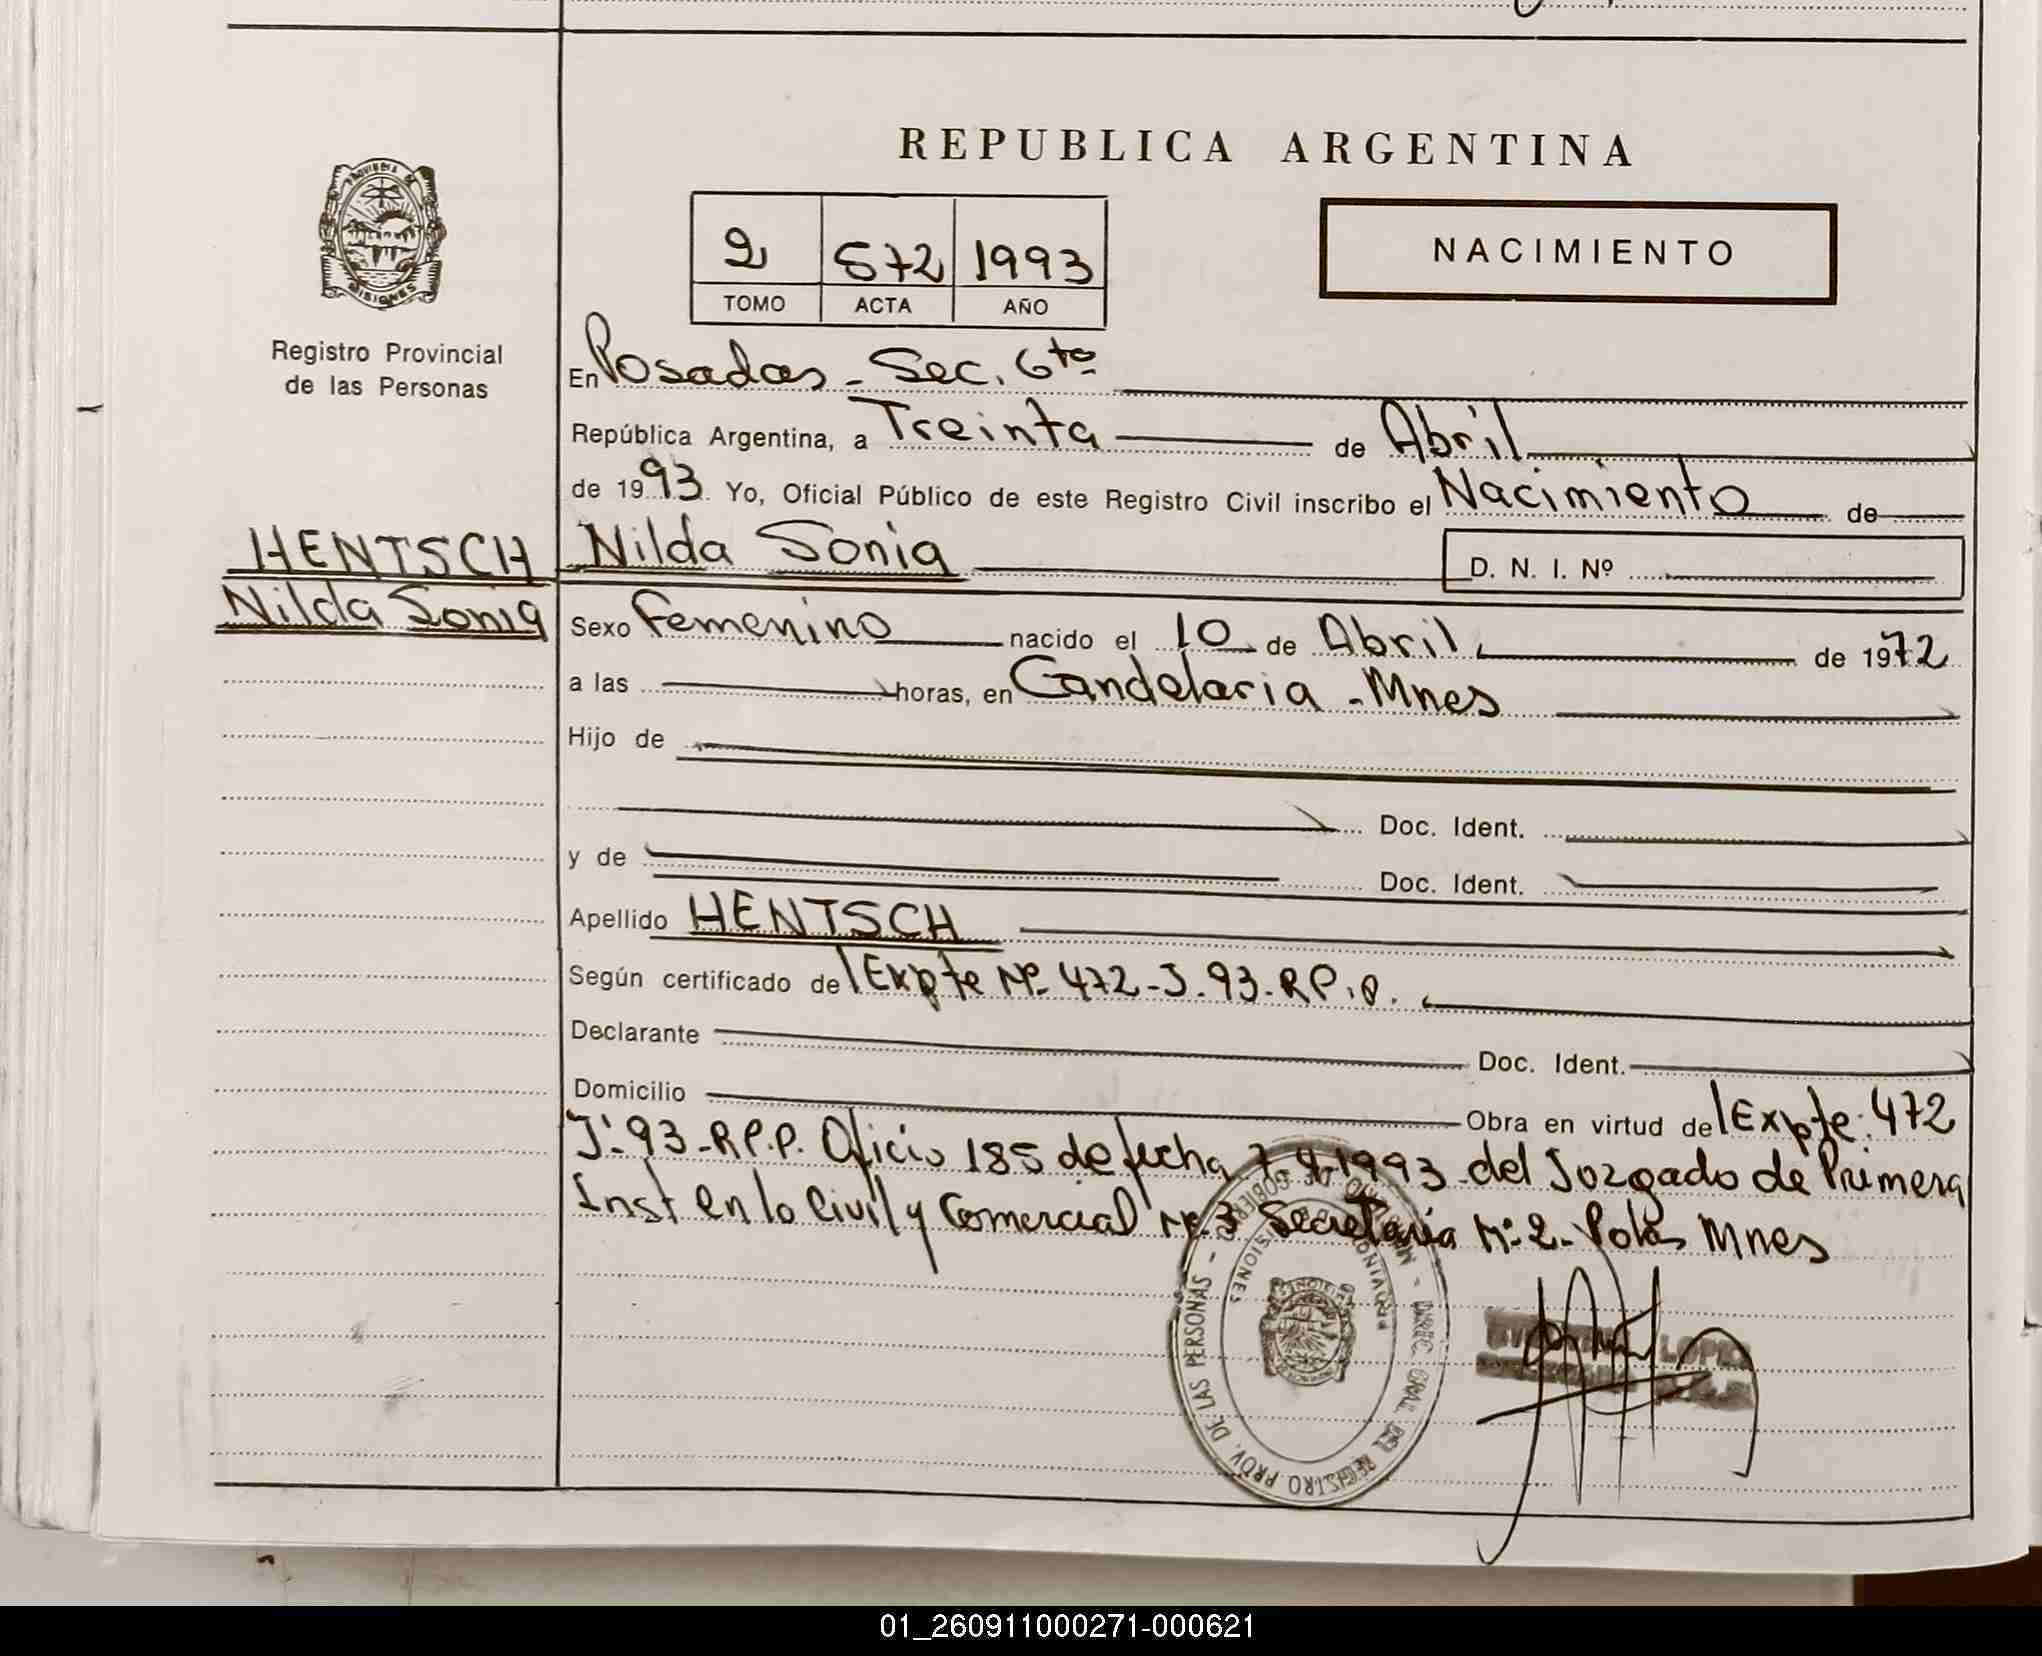 REPUBLICA ARGENTINA
2 572 1993
TOMO ACTA AÑO
NACIMIENTO
PROVINCIA DE
MISIONES
Registro Provincial
de las Personas
En Posadas - Sec. 6ta
República Argentina, a Treinta de Abril
de 1993. Yo, Oficial Público de este Registro Civil inscribo el Nacimiento de
HENTSCH
Nilda Sonia
Nilda Sonia D. N. I. Nº
Sexo Femenino nacido el 10 de Abril de 1972
a las horas, en Candelaria - Mnes
Hijo de
Doc. Ident.
y de Doc. Ident.
Apellido HENTSCH
Según certificado del Expte Nº 472-J.93-R.P.P.
Declarante Doc. Ident.
Domicilio Obra en virtud del Expte. 472
J. 93-R.P.P. Oficio 185 de fecha 1993 del Juzgado de Primera
Inst en lo Civil y Comercial Nº 3 Secretaria Nº 2 - Mnes
MINISTERIO DE GOBIERNO - DIREC. GRAL. DEL REGISTRO PROV. DE LAS PERSONAS -
PROVINCIA DE MISIONES
LOPEZ
01_260911000271-000621